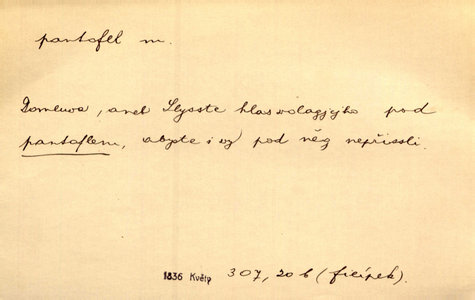 pantofel m.
Domluva, aneb Slysste hlas wolagjcjho pod
pantoflem, abyste i wy pod něg nepřissli.
1836 Květy 307, 20 b (filípek).